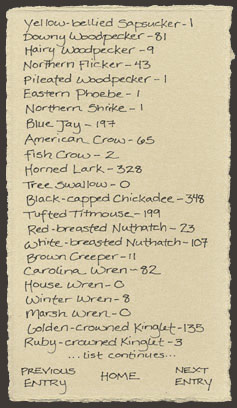 Yellow-bellied Sapsucker - 1
Downy Woodpecker - 81
Hairy Woodpecker - 9
Northern Flicker - 43
Pileated Woodpecker - 1
Eastern Phoebe - 1
Northern Shrike - 1
Blue Jay - 197
American Crow - 65
Fish Crow - 2
Horned Lark - 328
Tree Swallow - 0
Black-capped Chickadee - 348
Tufted Titmouse - 199
Red-breasted Nuthatch - 23
White-breasted Nuthatch - 107
Brown Creeper - 11
Carolina Wren - 82
House Wren - 0
Winter Wren - 8
Marsh Wren - 0
Golden-crowned Kinglet - 135
Ruby-crowned Kinglet - 3
...list continues...
PREVIOUS ENTRY
HOME
NEXT ENTRY